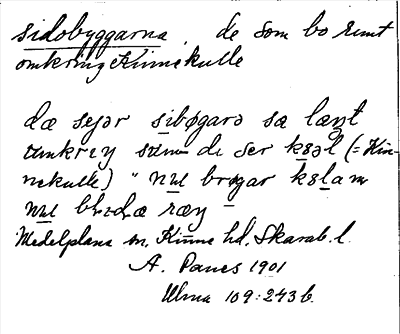 sidobyggarna, de som bo runt
omkring Kinnekulle
dæ sejər sibøgarə sa læŋt
umkrɪŋ sum de ser ksəl (= Kin-
nekulle) " nu brøgar kslam
nu bl dæ ræŋ
Medelplana sn, Kinne hd, Skarab. l.
A. Panes 1901
Ulma 109:243 b.